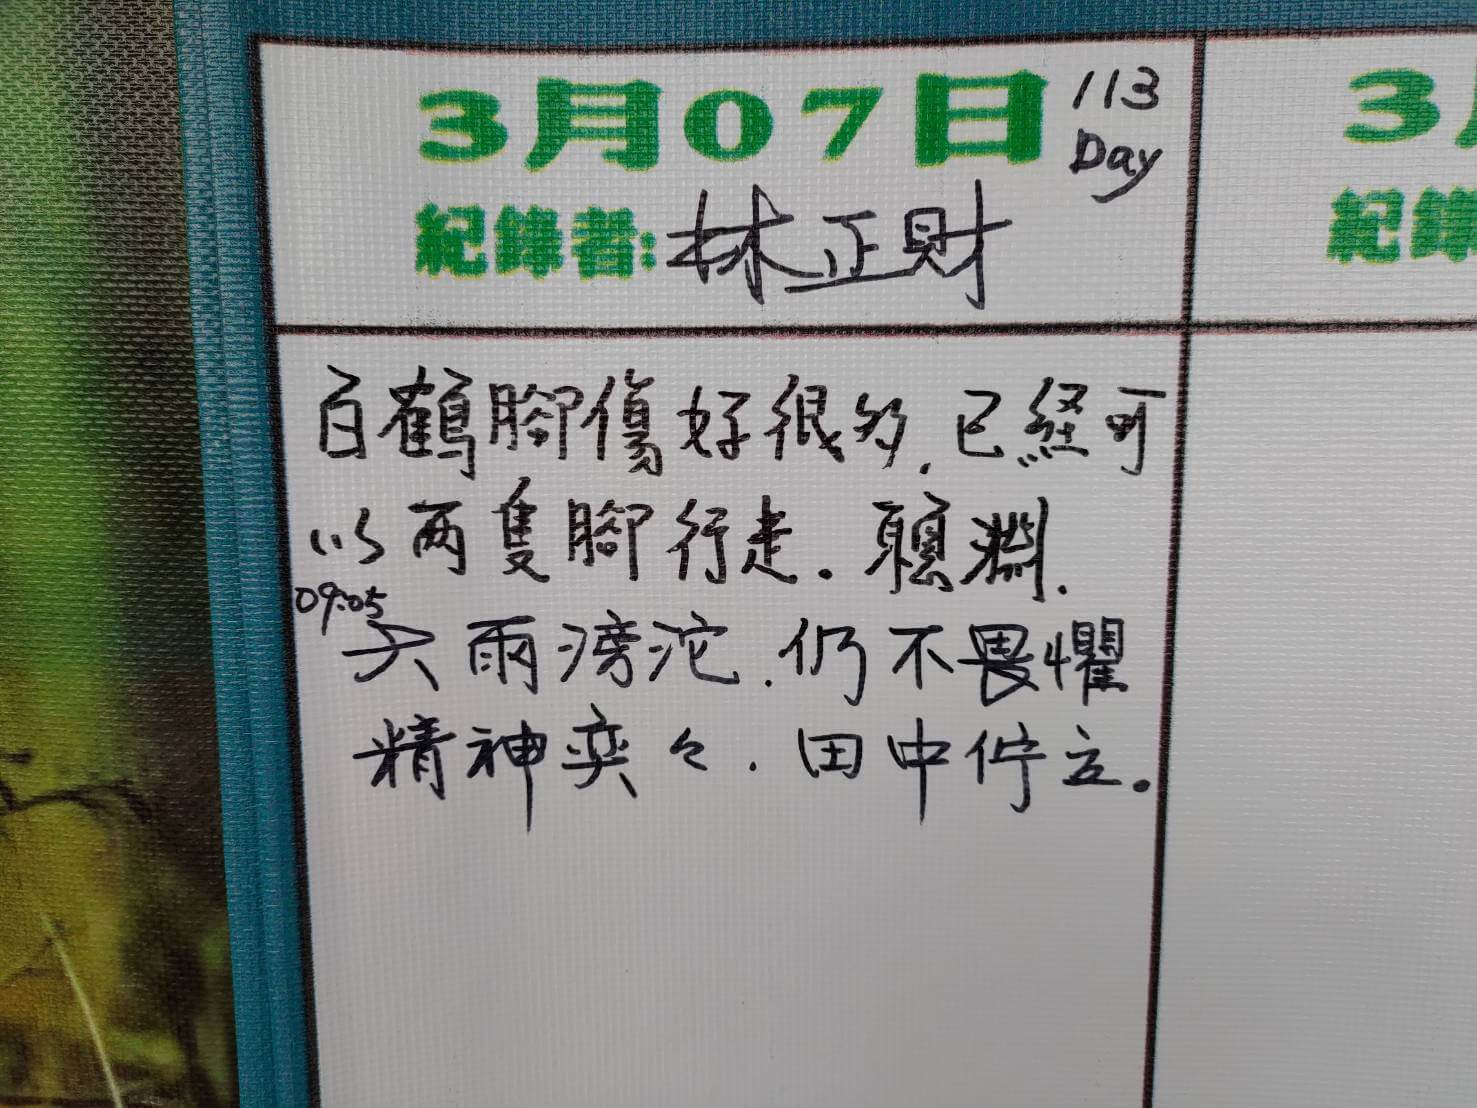 3月07日 113
Day
紀錄者:林正財
白鶴腳傷好很多.已経可
以两隻腳行走.聰淵.
09:05
大雨滂沱.仍不畏懼
精神奕々.田中佇立.
3月
紀錄